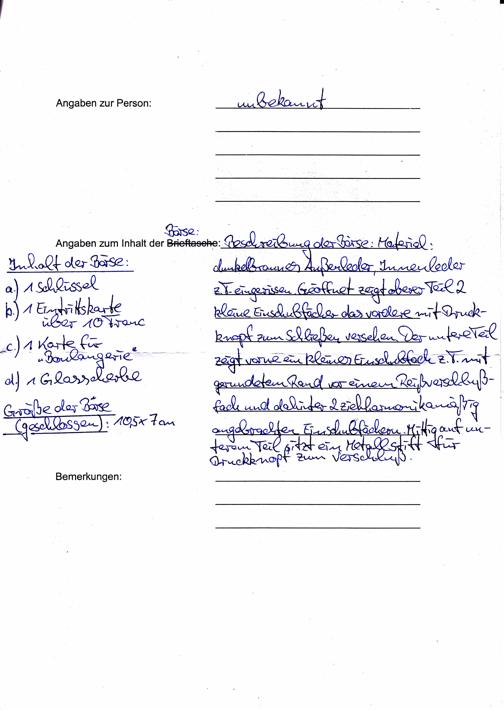 Angaben zur Person: unbekannt
Börse:
Angaben zum Inhalt der Brieftasche: Beschreibung der Börse: Material:
dunkelbraunes Außenleder, Innenleder
z.T. eingerissen. Geöffnet zeigt oberer Teil 2
kleine Einschubfächer das vordere mit Druck-
knopf zum Schließen versehen. Der untere Teil
zeigt vorne ein kleines Einschubfach z.T. mit
gerundetem Rand vor einem Reißverschluß-
fach und dahinter 2 ziehharmonikamäßig
angebrachten Einschubfächern. Mittig auf un-
terem Teil sitzt ein Metallstift für
Druckknopf zum Verschluß.
Inhalt der Börse:
a) 1 Schlüssel
b) 1 Eintrittskarte
über 10 Franc
c) 1 Karte für
"Boulangerie"
d) 1 Glasscherbe
Größe der Börse
(geschlossen): 10,5 x 7 cm
Bemerkungen: